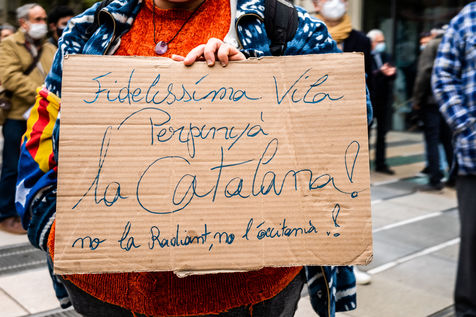 Fidelissima Vila
Perpinyà
la Catalana!
no la Radiant, no l'Occitània!